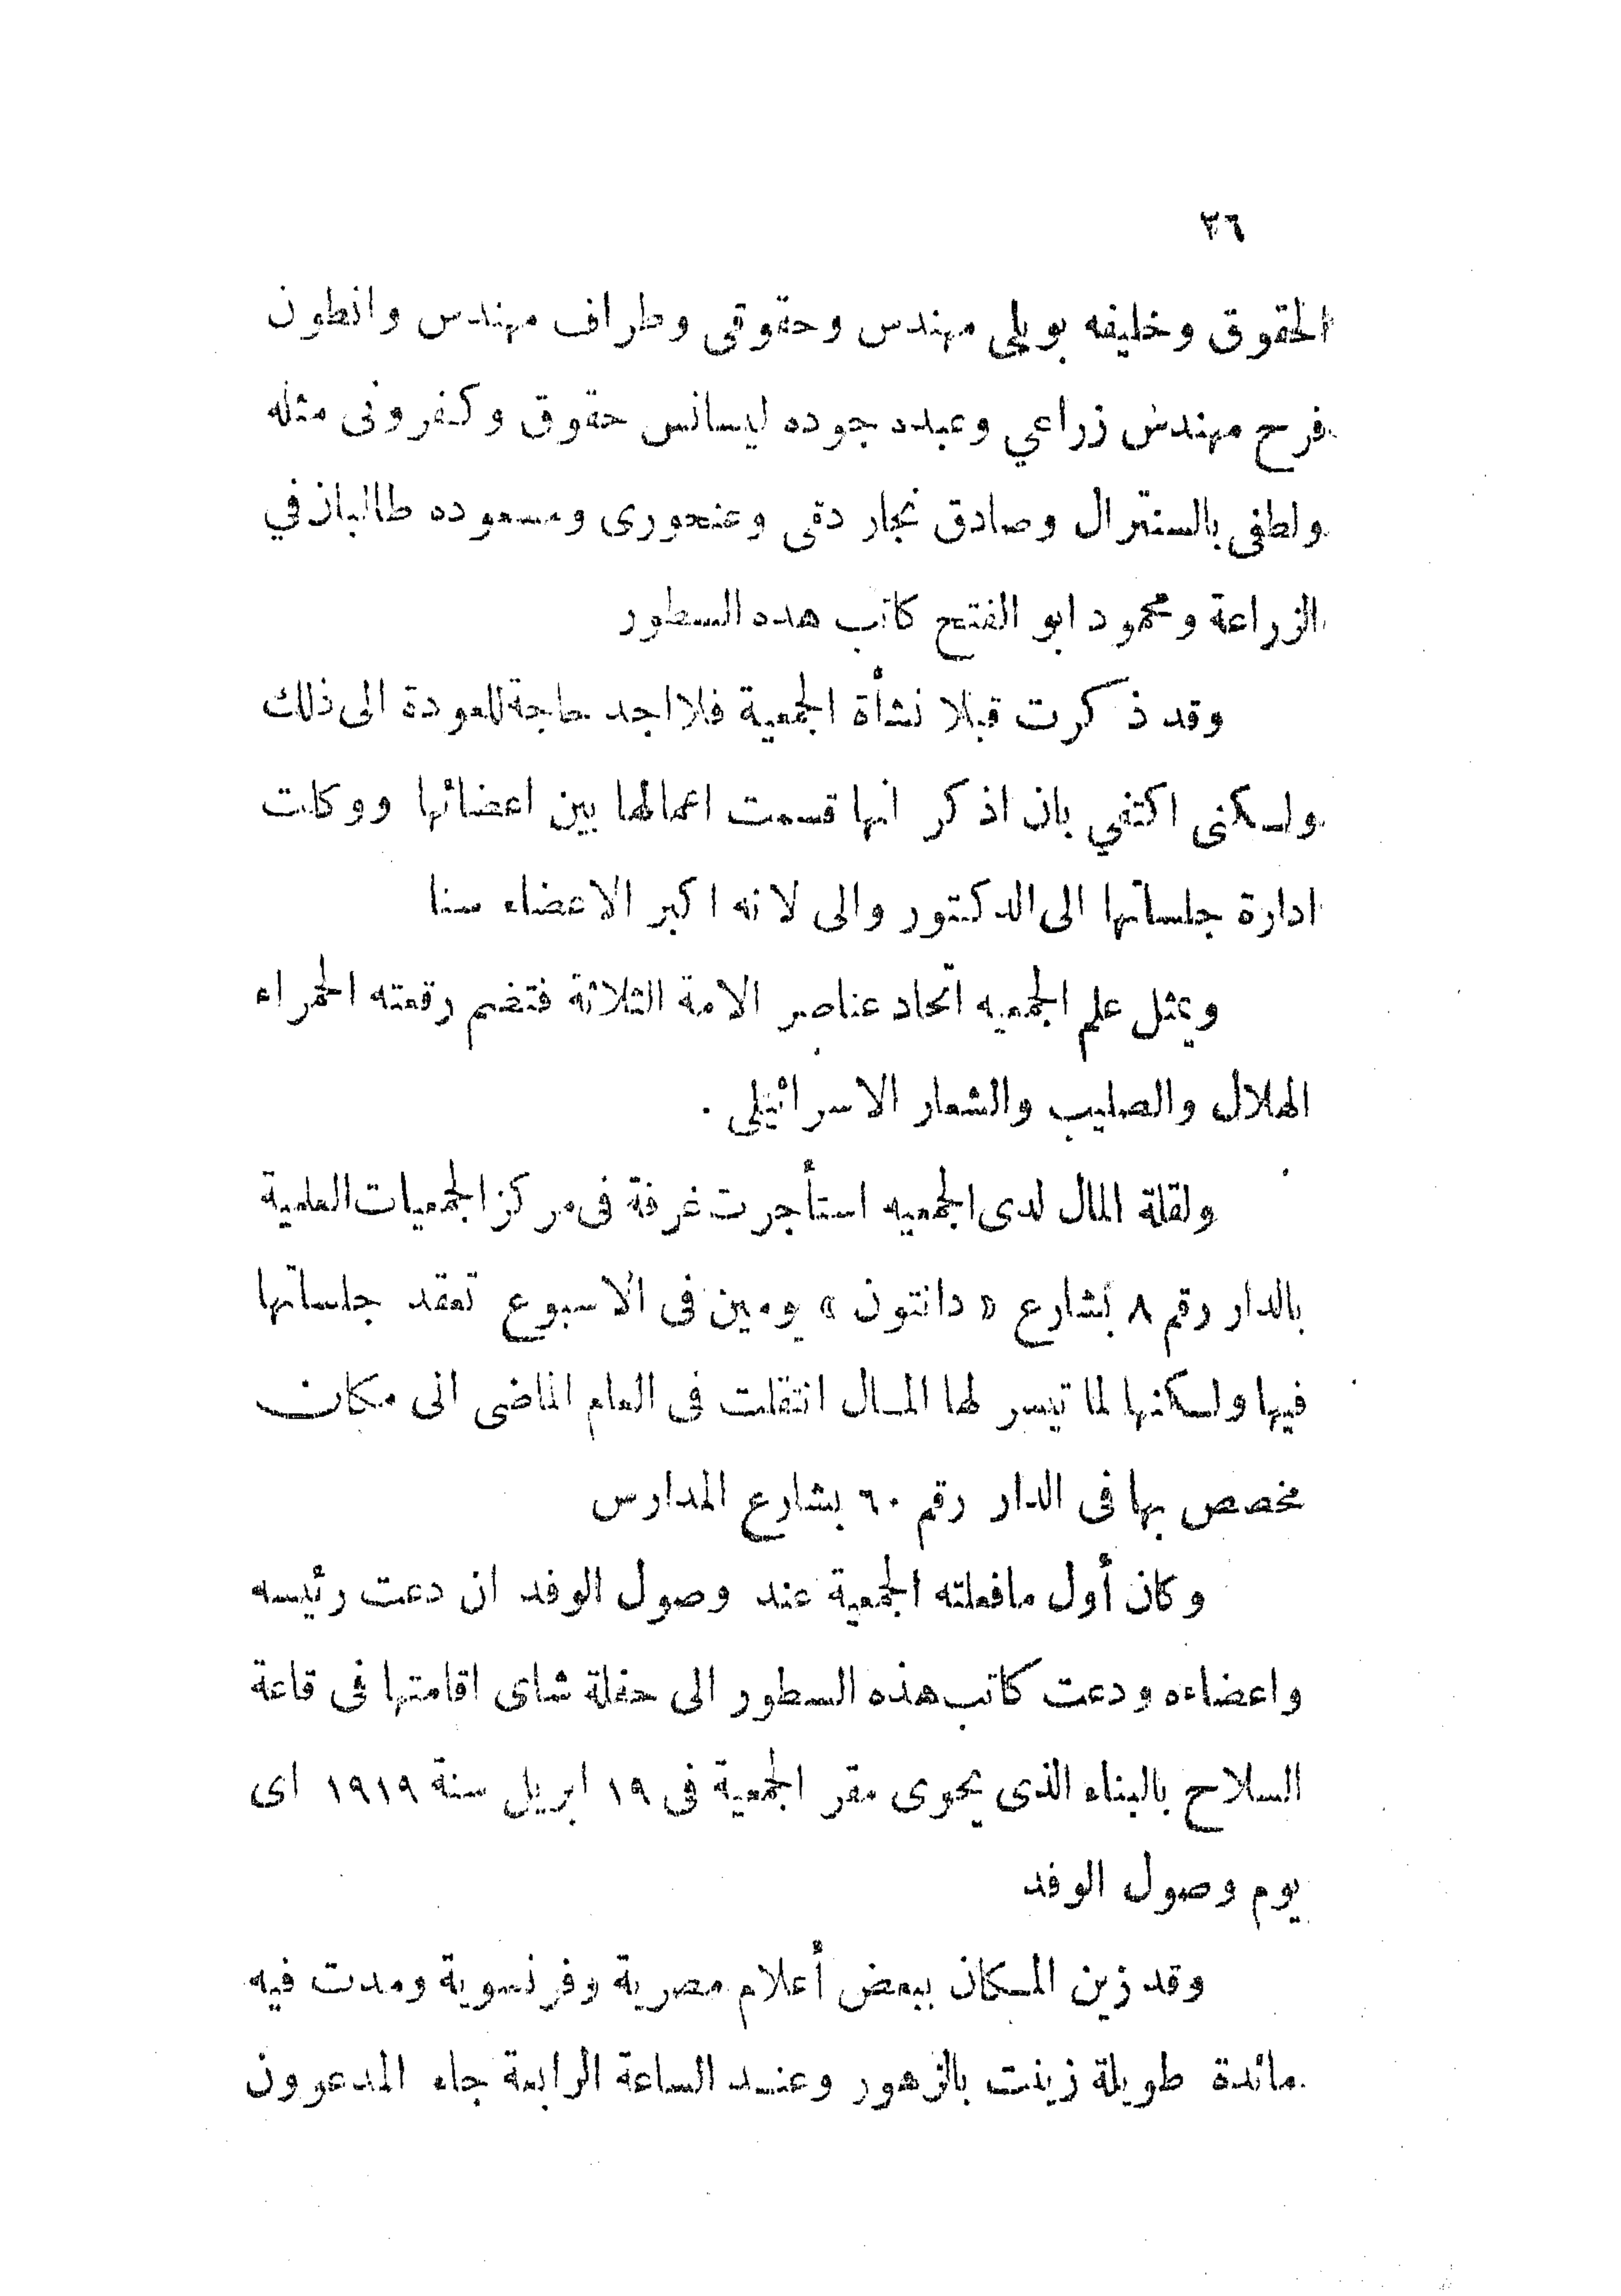 ٢٦
الحقوق وخليفه بويلى مهندس وحقوقى وطراف مهندس وانطون
فرح مهندس زراعي وعبده جوده ليسانس حقوق وكفرونى مثله
ولطفى بالسنترال وصادق نجار دقى وعنحورى ومسعوده طالبان في
الزراعة ومحمود ابو الفتح كاتب هذه السطور
وقد ذكرت قبلا نشأة الجمعية فلا اجد حاجة للعودة الى ذلك
ولكنى اكتفي بان اذكر انها قسمت اعمالها بين اعضائها ووكلت
ادارة جلساتها الى الدكتور والى لانه اكبر الاعضاء سنا
ويمثل علم الجمعيه اتحاد عناصر الامة الثلاثة فتضم رقعته الحمراء
الهلال والصليب والشعار الاسرائيلى .
ولقلة المال لدى الجمعيه استأجرت غرفة فى مركز الجمعيات العلمية
بالدار رقم ٨ بشارع « دانتون » يومين فى الاسبوع تعقد جلساتها
فيها ولكنها لما تيسر لها المال انتقلت فى العام الماضى الى مكان
مخصص بها فى الدار رقم ٦٠ بشارع المدارس
وكان أول مافعلته الجمعية عند وصول الوفد ان دعت رئيسه
واعضاءه ودعت كاتب هذه السطور الى حفلة شاى اقامتها فى قاعة
السلاح بالبناء الذى يحوى مقر الجمعية فى ١٩ ابريل سنة ١٩١٩ اى
يوم وصول الوفد
وقد زين المكان ببعض أعلام مصرية وفرنسوية ومدت فيه
مائدة طويلة زينت بالزهور وعند الساعة الرابعة جاء المدعوون